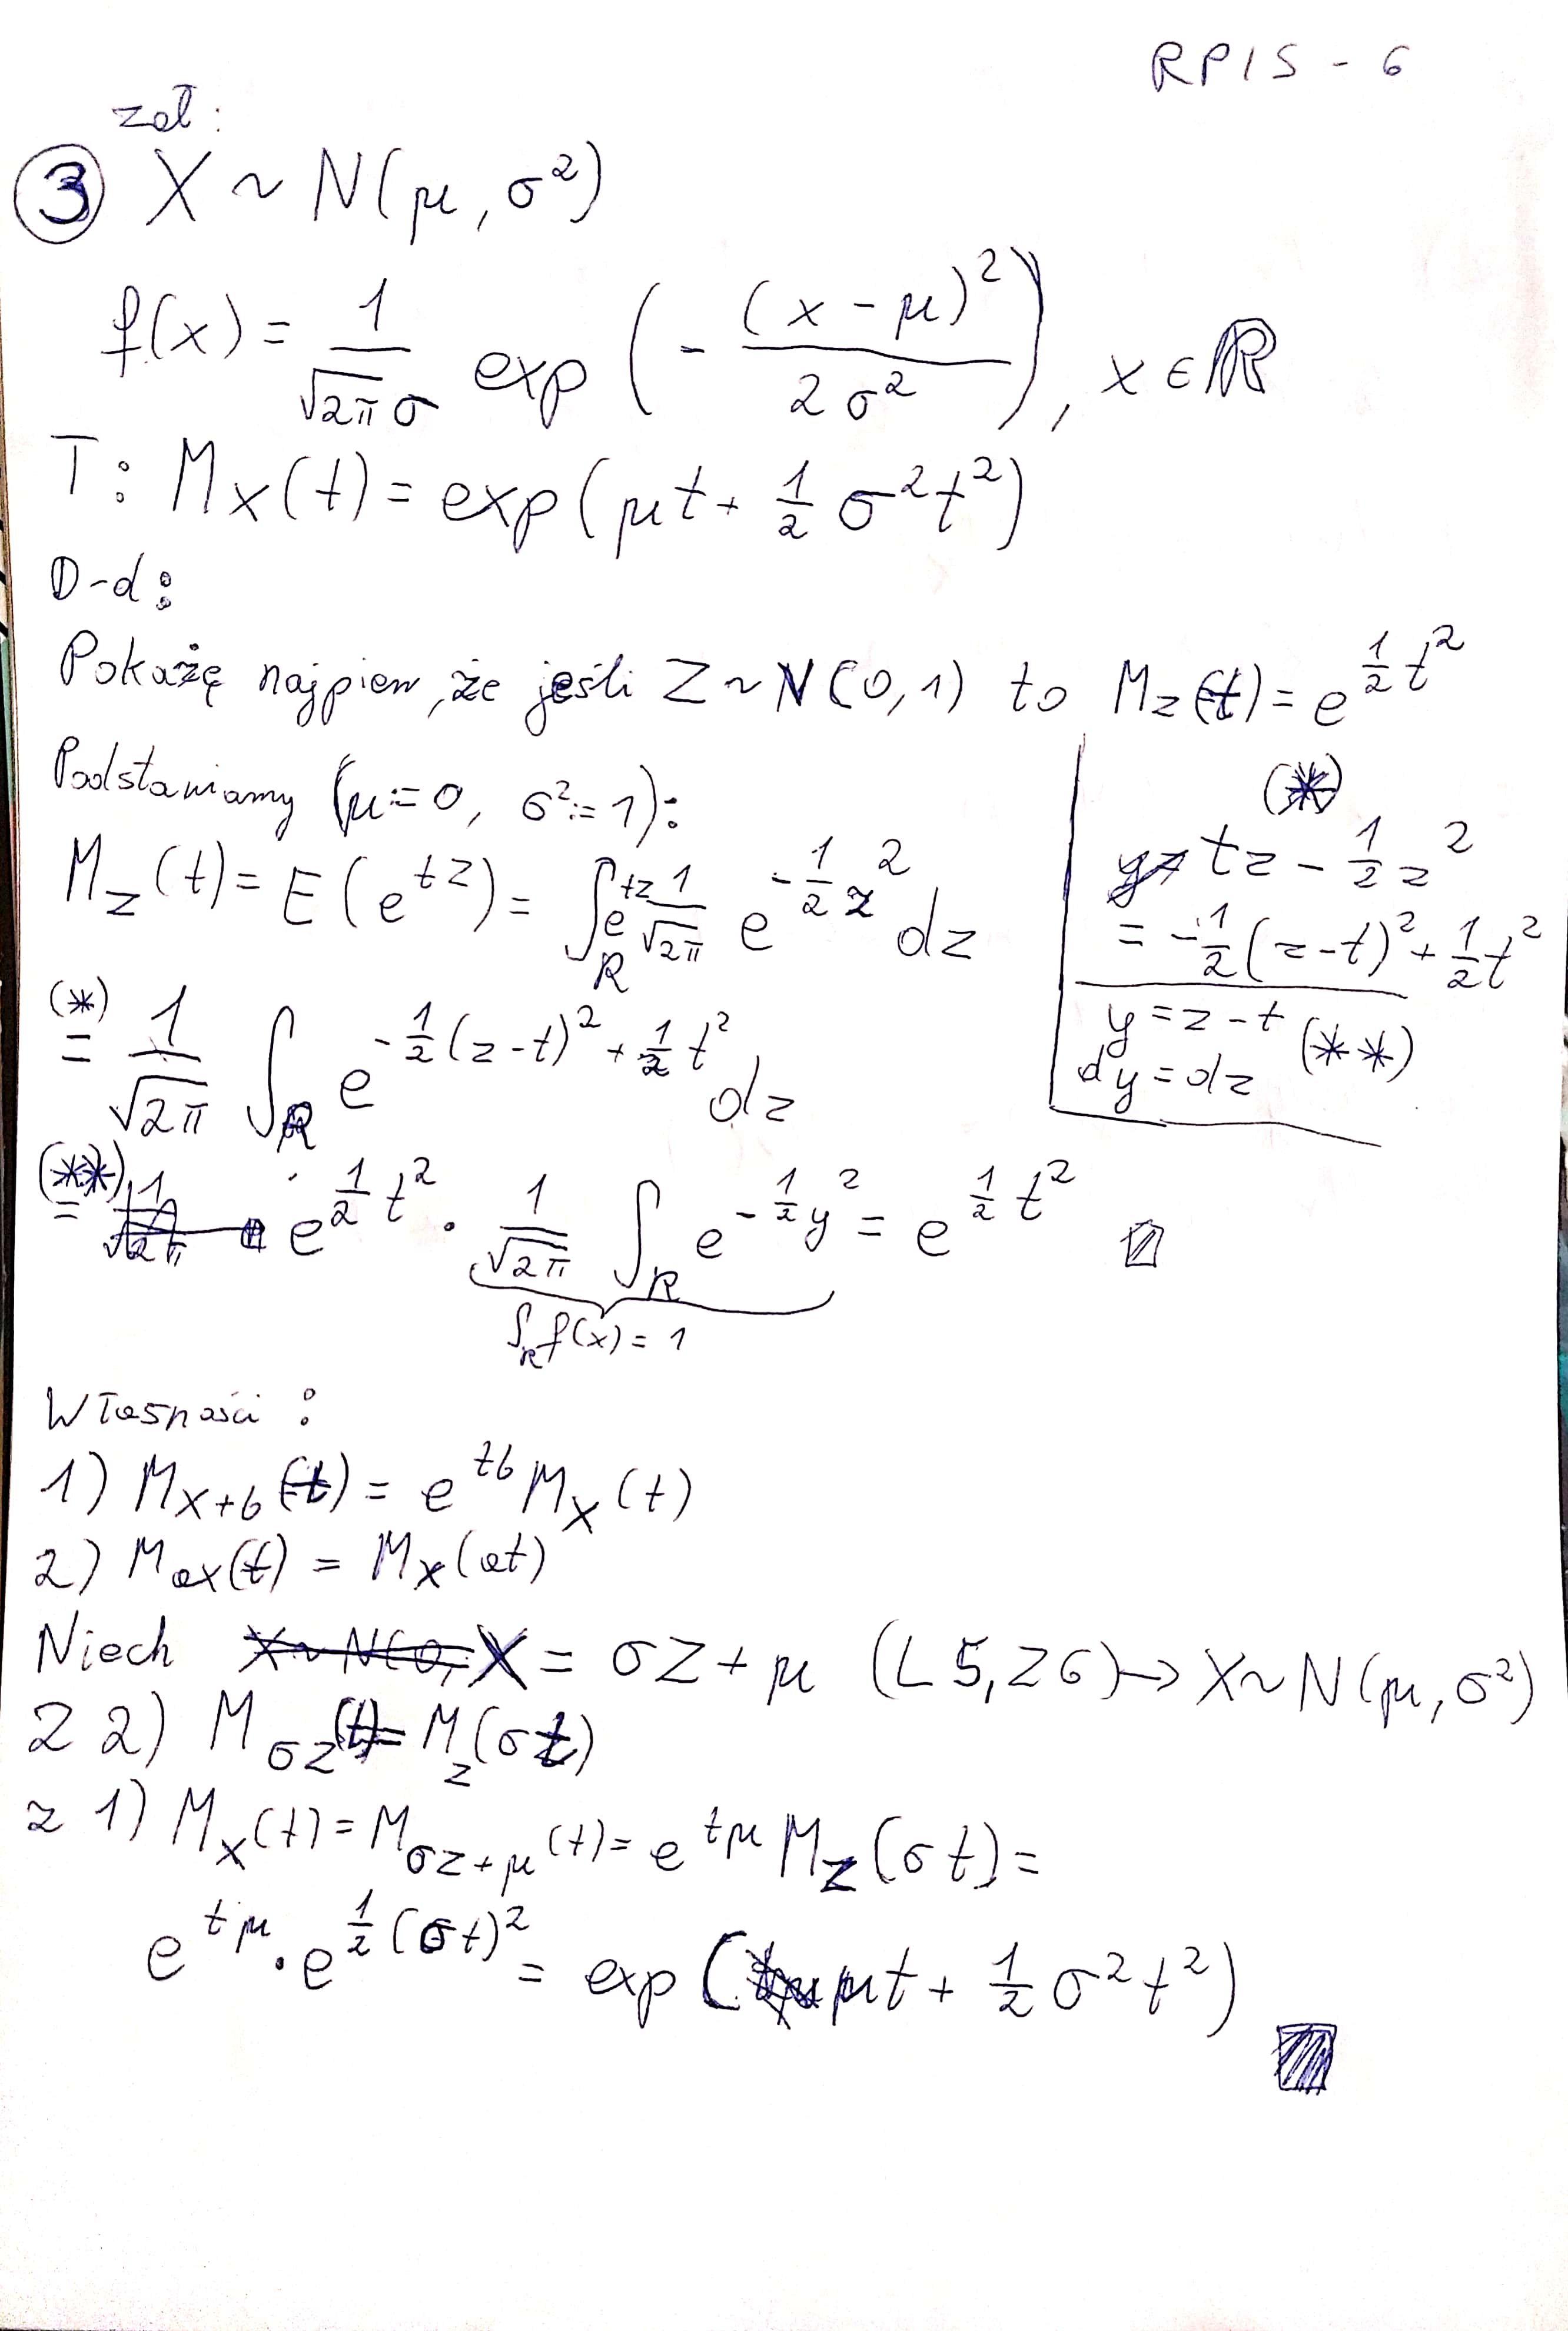 RPIS - 6
zał:
③ X ~ N(μ, σ²)
f(x) = 1/(√2π σ) exp(- (x-μ)²/(2σ²)), x ∈ ℝ
T: M_X(t) = exp(μt + 1/2 σ²t²)
D-d:
Pokażę najpierw, że jeśli Z ~ N(0,1) to M_Z(t) = e^(1/2 t²)
Podstawiamy (μ:=0, σ²:=1):
M_Z(t) = E(e^(tZ)) = ∫_R e^(tz) 1/√2π e^(-1/2 z²) dz
(*)
tz - 1/2 z²
= -1/2(z-t)² + 1/2 t²
y = z-t (**)
dy = dz
(*) = 1/√2π ∫_R e^(-1/2(z-t)² + 1/2 t²) dz
(**) = e^(1/2 t²) · 1/√2π ∫_R e^(-1/2 y²) = e^(1/2 t²) □
∫_R f(x) = 1
Własności:
1) M_X+b(t) = e^(tb) M_X(t)
2) M_aX(t) = M_X(at)
Niech X = σZ + μ (L5, Z6) → X ~ N(μ, σ²)
Z 2) M_σZ(t) = M_Z(σt)
z 1) M_X(t) = M_σZ+μ(t) = e^(tμ) M_Z(σt) =
e^(tμ) · e^(1/2(σt)²) = exp(μt + 1/2 σ²t²)